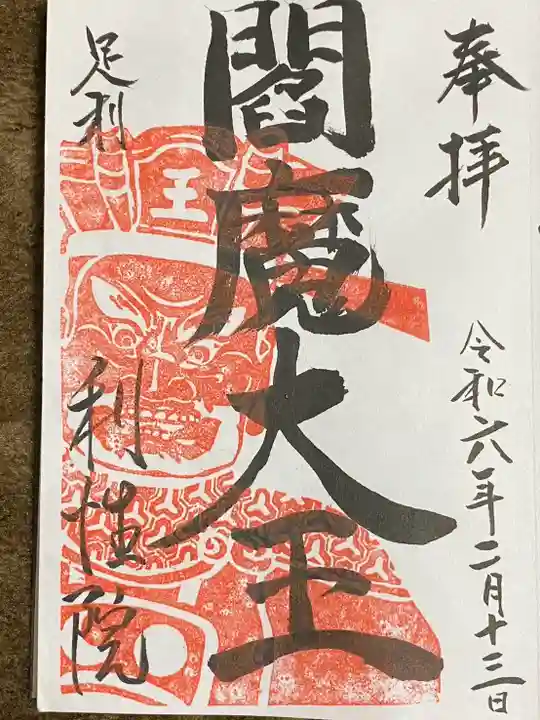 奉拝
令和六年二月十三日
閻魔大王
王
足利
利性院